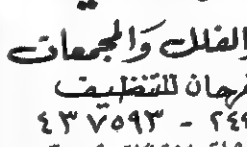 الفلل والمجمعات
مرجان للتنظيف
٢٤٤ - ٤٣٧٥٩٣